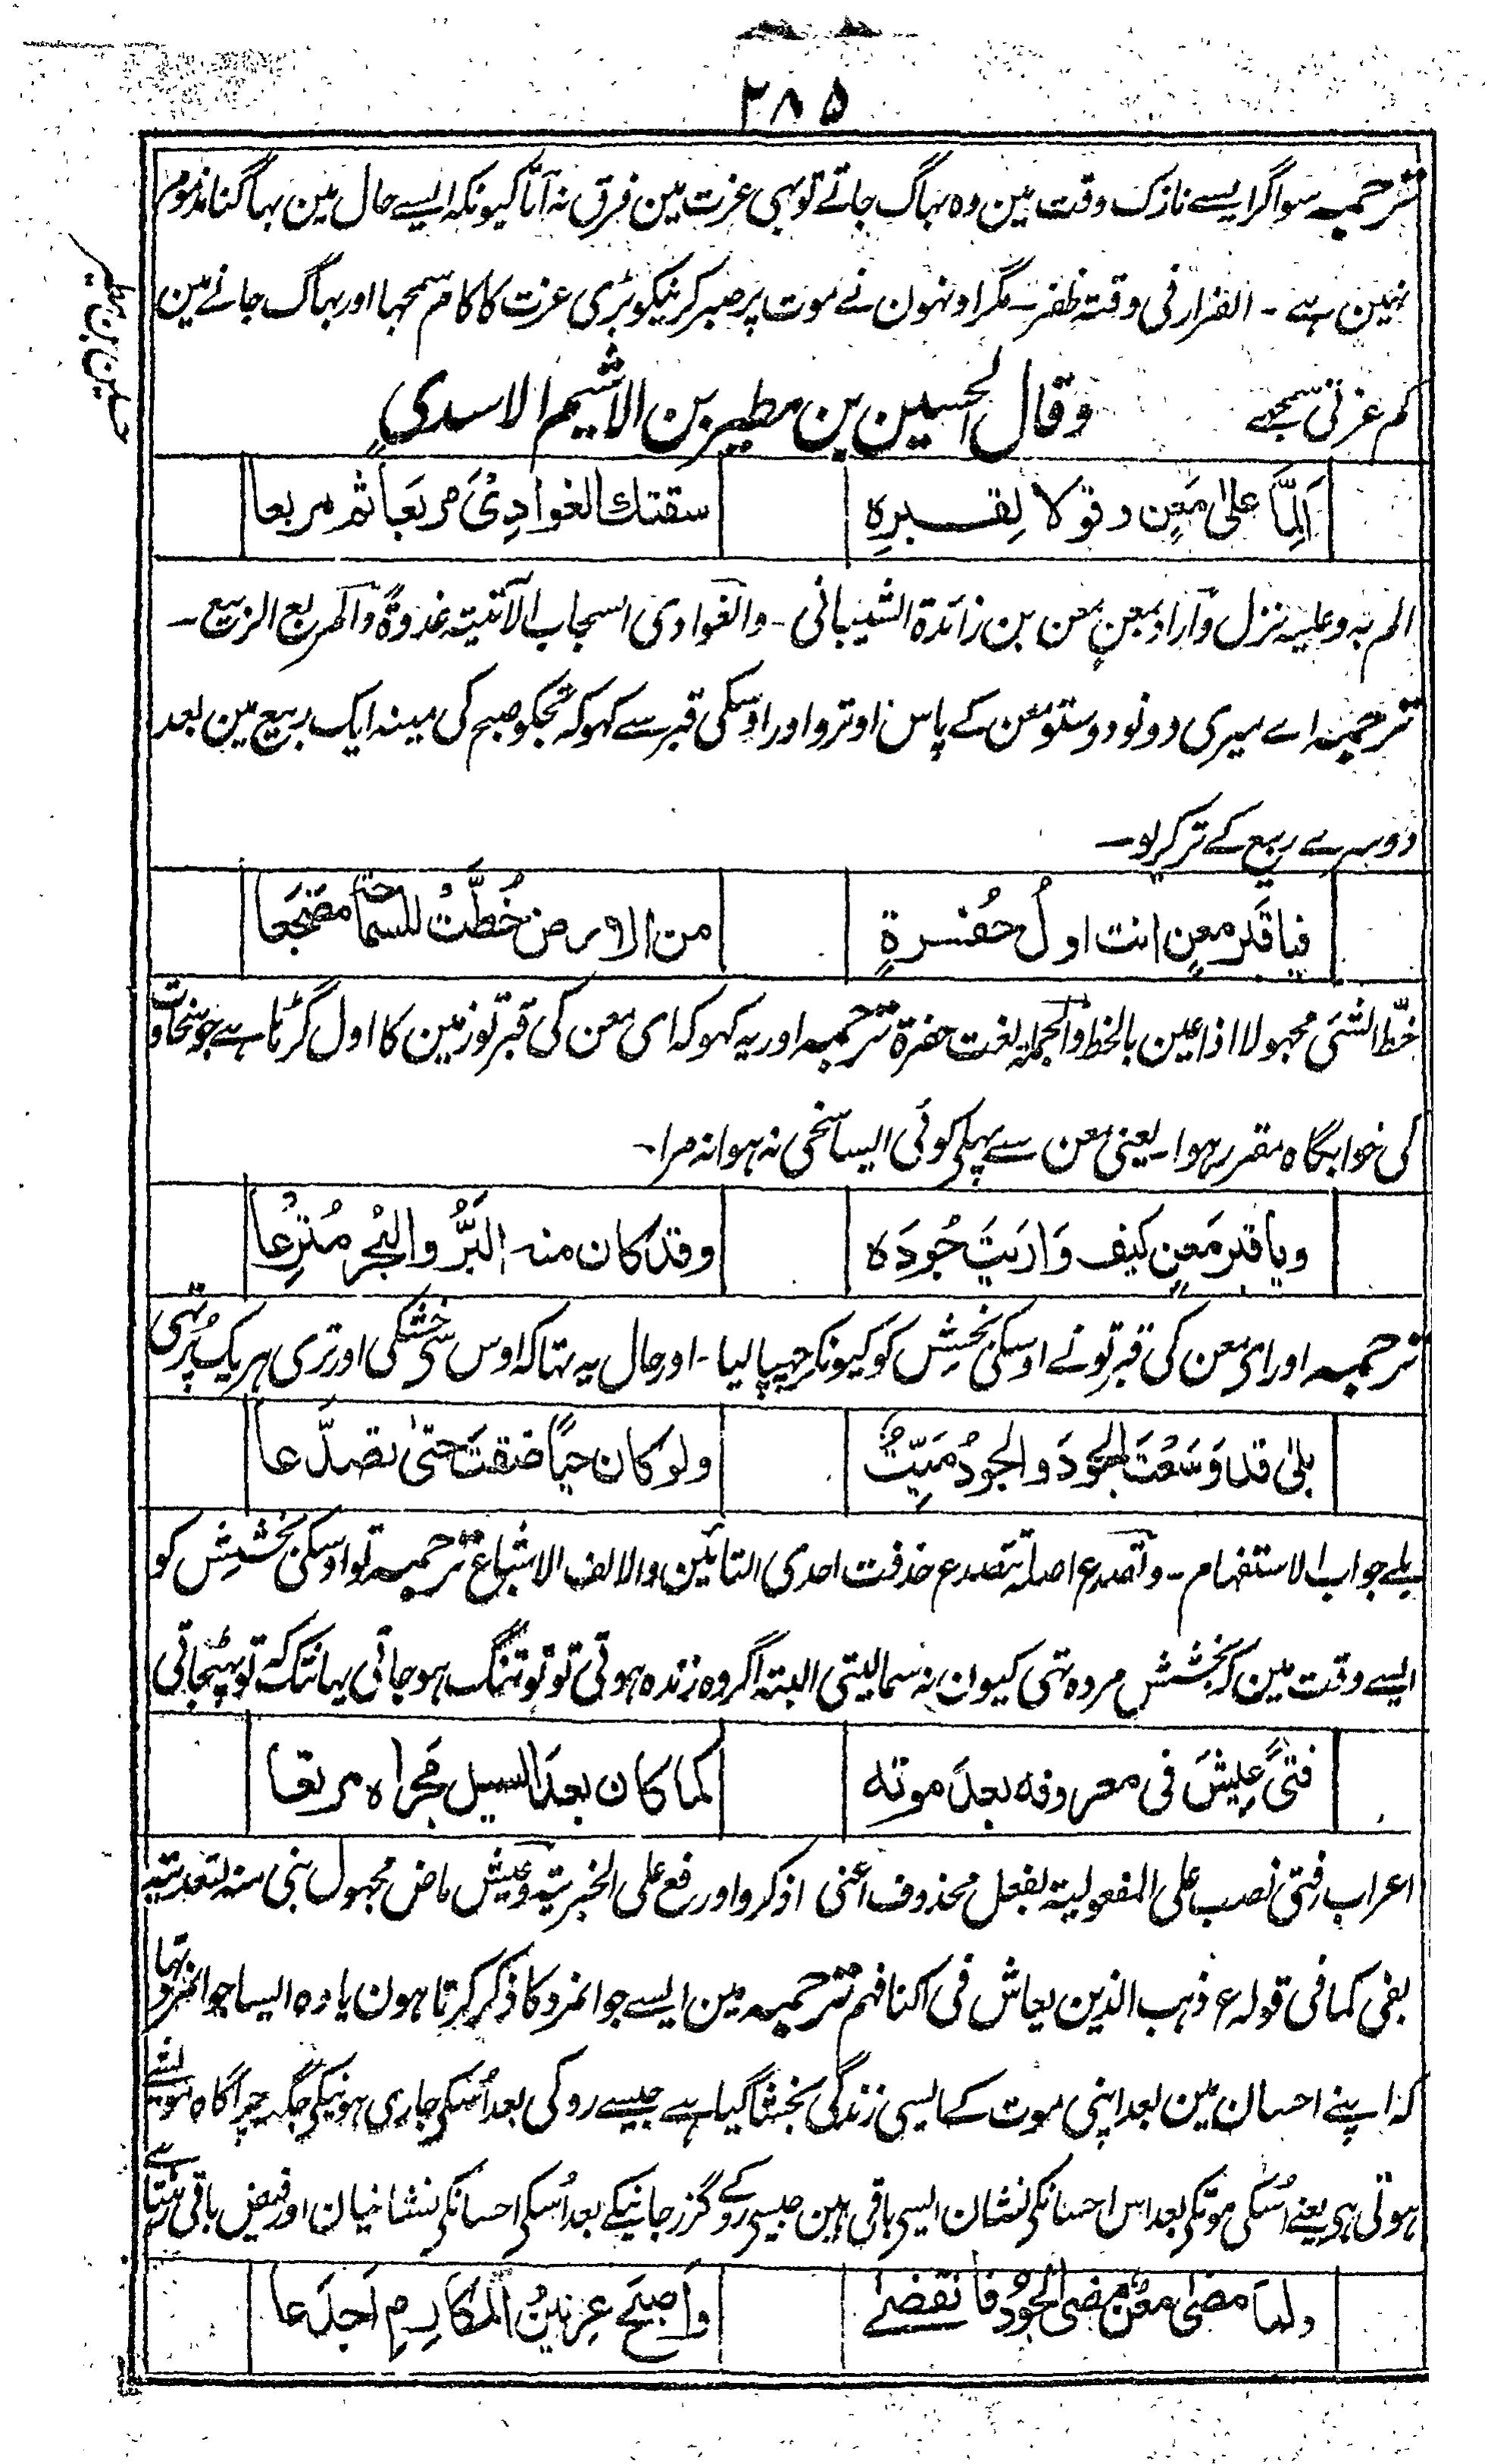 ۲۸۵
ترجمہ سو اگر ایسے نازک وقت مین وہ بہاگ جاتے تو بہی عزت مین فرق نہ آتا کیونکہ ایسے حال مین بہاگنا مذموم
نہین ہے ۔ الفرار فی وقتہ ظفر ۔ مگر اونہون نے موت پر صبر کرنیکو بڑی عزت کا کام سمجہا اور بہاگ جانے مین
کم عزتی سمجھے
وقال الحسین بن مطیر بن الاشیم الاسدی
حسین بن مطیر
اَلِمَّا علیٰ مَعنٍ وقولا لِقبرِہ
سقتك الغوادِیْ مَربَعاً ثم مربعا
الم بہ وعلیہ نزل وآراد بمعنٍ معن بن زائدۃ الشیبانی ۔ والغوادی السحاب الآتیۃ غدوۃً والمربع الربیع ۔
ترجمہ اے میری دونو دوستو معن کے پاس اوترو اور اوسکی قبر سے کہو کہ تجکو صبح کی مینہ ایک ربیع مین بعد
دوسرے ربیع کے تر کریو ۔
فیا قبر معنٍ انت اولُ حُفرةٍ
من الارض خُطَّتْ للسماحة مضجَعا
خطّ الشئی مجہولا اذا عین بالخط والجملۃ لغت حفرۃ ترجمہ اور یہ کہو کہ ای معن کی قبر تو زمین کا اول گڑہا ہے جو سخاوت
کی خوابگاہ مقرر ہوا ۔ یعنی معن سے پہلی کوئی ایسا سخی نہ ہوا نہ مرا ۔
ویا قبر مَعنٍ کیف وَارَیتَ جُودَہ
وقد کان منہ البَرُّ والبحر مُترَعا
ترجمہ اور ای معن کی قبر تو نے اوسکی بخشِش کو کیونکر چہپا لیا ۔ اور حال یہ تہا کہ اوس سی خشکی اور تری ہر یک پُر تہی
بلیٰ قد وَسَعْتَ الجودَ والجودُ مَیّتٌ
ولو کان حیاً ضقتَ حتیٰ تصدّعا
بلے جواب الاستفہام ۔ وتصدع اصلہ تتصدع حذفت احدی التائین والالف الاشباع ترجمہ تو اوسکی بخشِش کو
ایسے وقت مین کہ بخشش مردہ تہی کیوان نہ سمالیتی البتہ اگر وہ زندہ ہوتی تو تو تنگ ہو جاتی یہانتک کہ تو پہٹجاتی
فتیً عِیشَ فی معروفہ بعدَ موتہ
کما کان بعدَ السیل مَجراہ مرتعا
اعراب فتی نصب علی المفعولیۃ لفعل محذوف اعنی اذکر واو رفع علی الخبریۃ وعیش ماض مجہول بنی منہ لتعدیتہ
بفی کما فی قولہ ع ذہب الذین یعاش فی اکنافہم ترجمہ مین ایسے جوانمرد کا ذکر کرتا ہون یا وہ ایسا جوانمرد تہا
کہ اپنے احسان مین بعد اپنی موت کے ایسی زندگی بخشا گیا ہے جیسے رو کی بعد اُسکی جاری ہونیکی جگہ چراگاہ مویشے
ہوتی ہی یعنے اُسکی موتکی بعد اس احسانکی نشان ایسی باقی ہین جیسی روکے گزر جانیکے بعد اُسکی احسانکی نشانیان اور فیض باقی رہتا ہے
ولما مضیٰ معنٌ مضی الجودُ فانقضیٰ
واَصبَح عِرنینُ المکارِمِ اَجدَعا